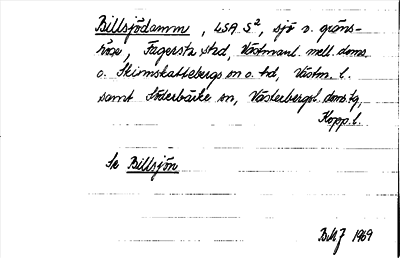 Billsjödamm, LSA S², sjö o. gräns-
röse, Fagersta stad, Västmanl. mell. doms.
o. Skinnskattebergs sn o. hd, Västm. l.
samt Söderbärke sn, Västerbergsl. doms.tg,
Kopp. l.
Se Billsjön
BMJ 1969